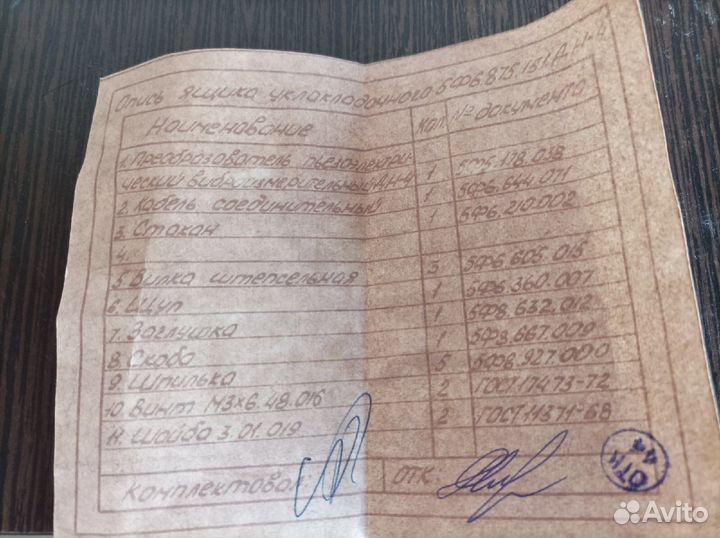 Опись ящика укладочного 5Ф6.875.151 Д, Н-4
Наименование Кол. № документа
1. Преобразователь пьезоэлектри-
ческий виброизмерительный ДН-4 1 5Ф5.178.038
2. Кабель соединительный 1 5Ф6.644.071
3. Стакан 1 5Ф6.210.002
4.
5. Вилка штепсельная 3 5Ф6.605.015
6. Щуп 1 5Ф6.360.007
7. Заглушка 1 5Ф8.632.012
8. Скоба 1 5Ф8.667.009
9. Шпилька 5 5Ф8.927.000
10. Винт М3×6.48.016 2 ГОСТ 17473-72
11. Шайба 3.01.019 2 ГОСТ 11371-68
Комплектовал: ОТК:
ОТК
44
Avito